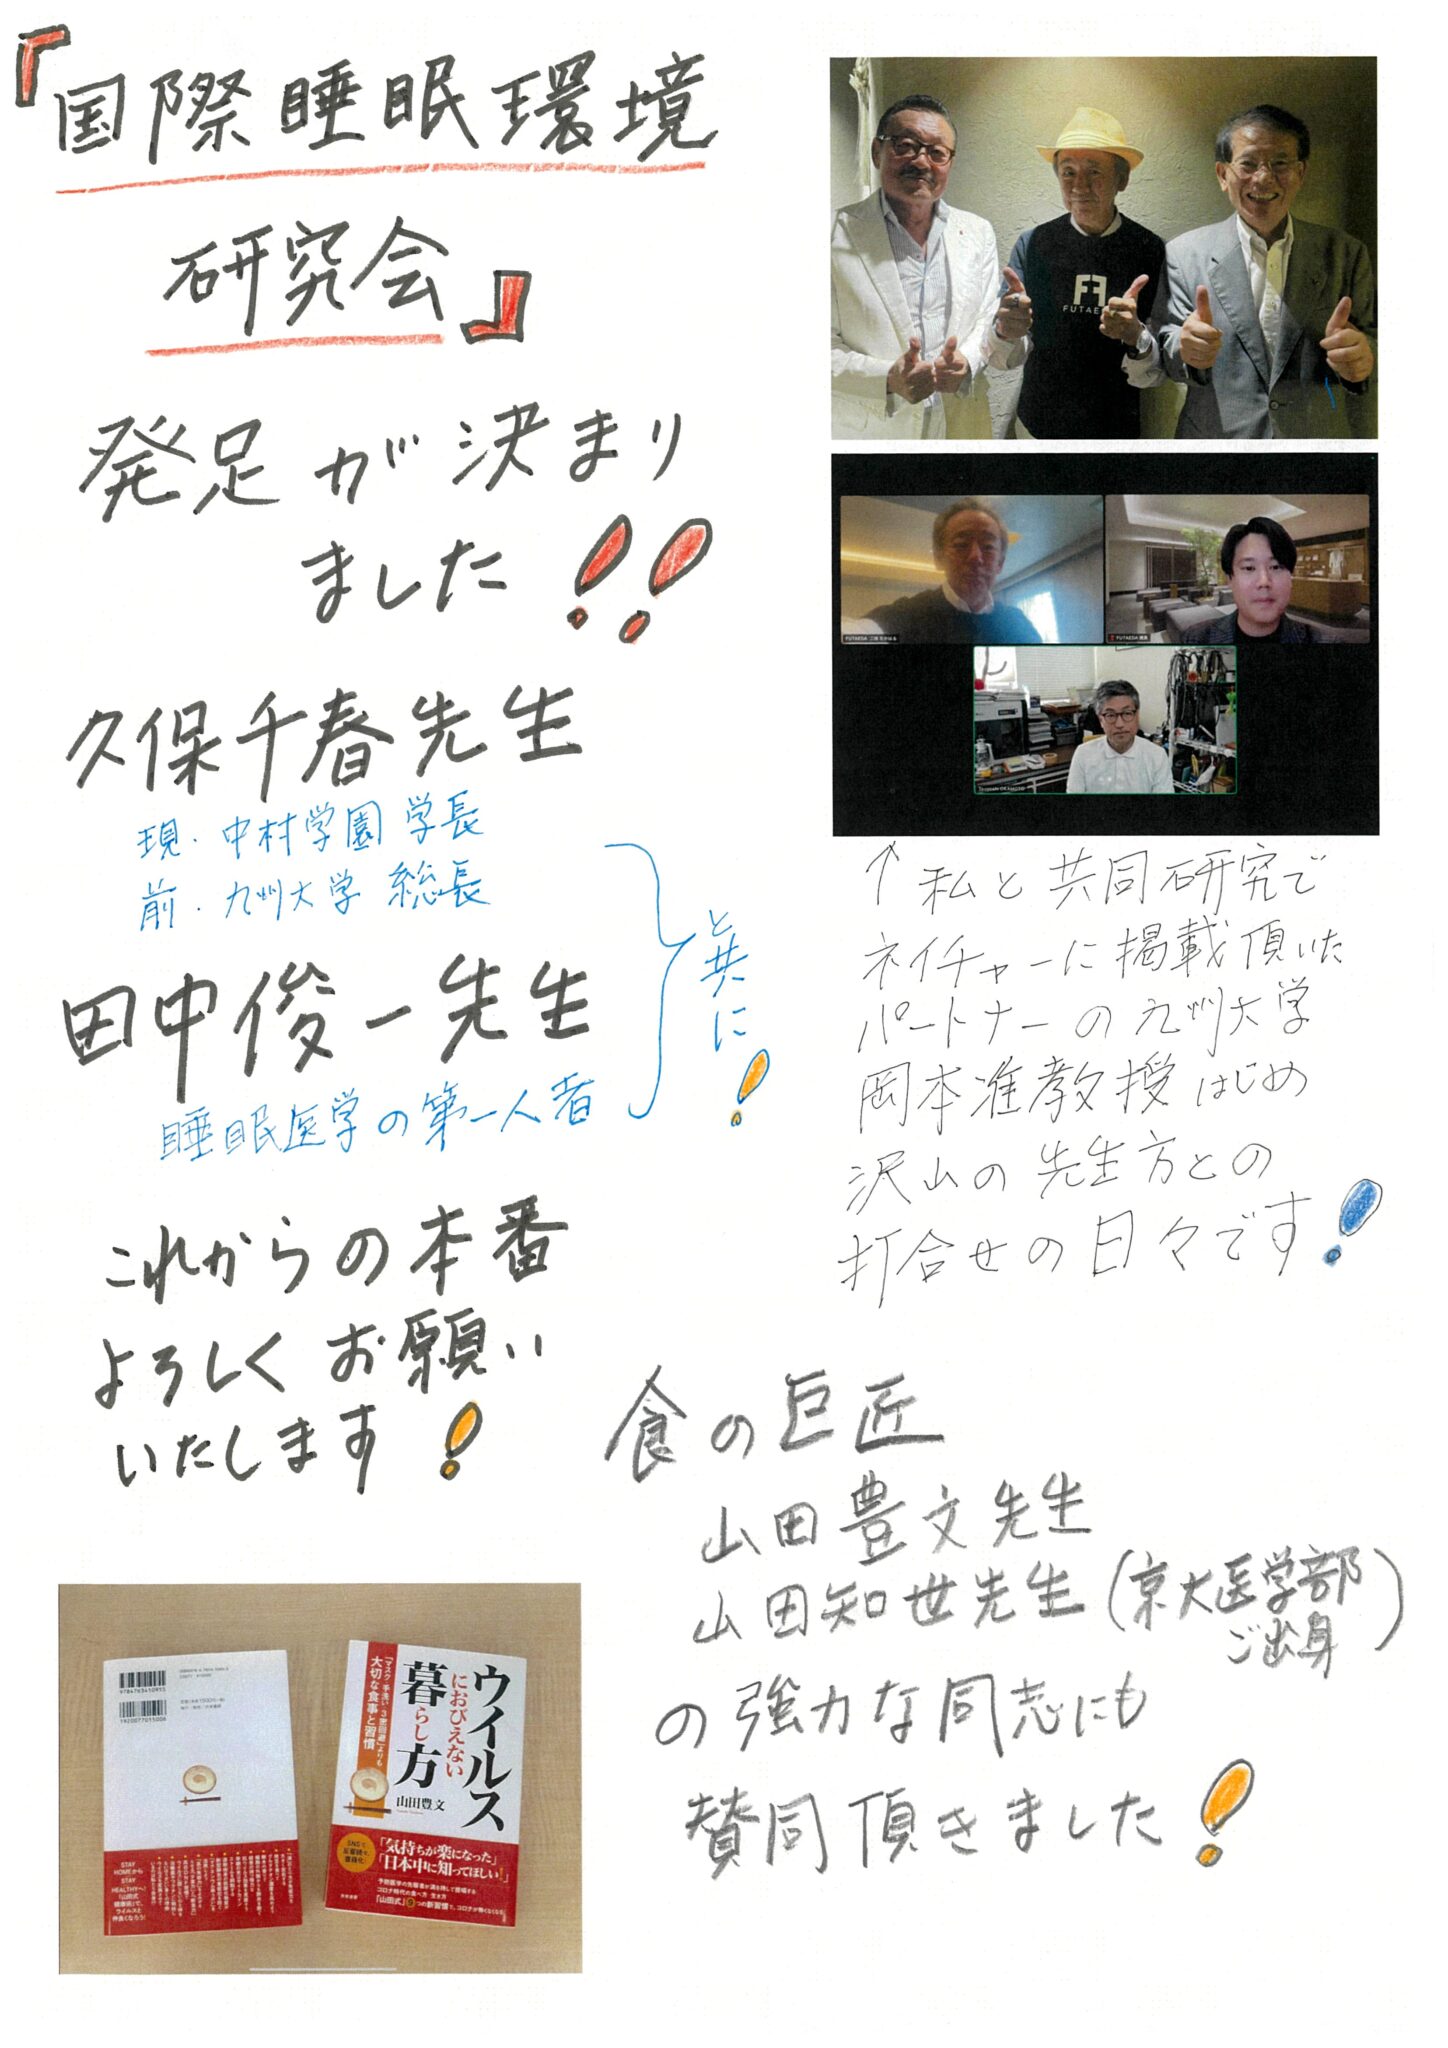 『国際睡眠環境
研究会』
発足が決まり
ました!!
久保千春先生
現・中村学園学長
前・九州大学総長
田中俊一先生
睡眠医学の第一人者
と共に!
これからの本番
よろしくお願い
いたします!
FUTAEDA
↑私と共同研究で
ネイチャーに掲載頂いた
パートナーの九州大学
岡本准教授はじめ
沢山の先生方との
打合せの日々です!
食の巨匠
山田豊文先生
山田知世先生(京大医学部
ご出身)
の強力な同志にも
賛同頂きました!
ウイルス
におびえない
暮らし方
「マスク・手洗い・3密回避」よりも
大切な食事と習慣
山田豊文
「気持ちが楽になった」
「日本中に知ってほしい!」
STAY
HOMEから
STAY
HEALTHYへ!